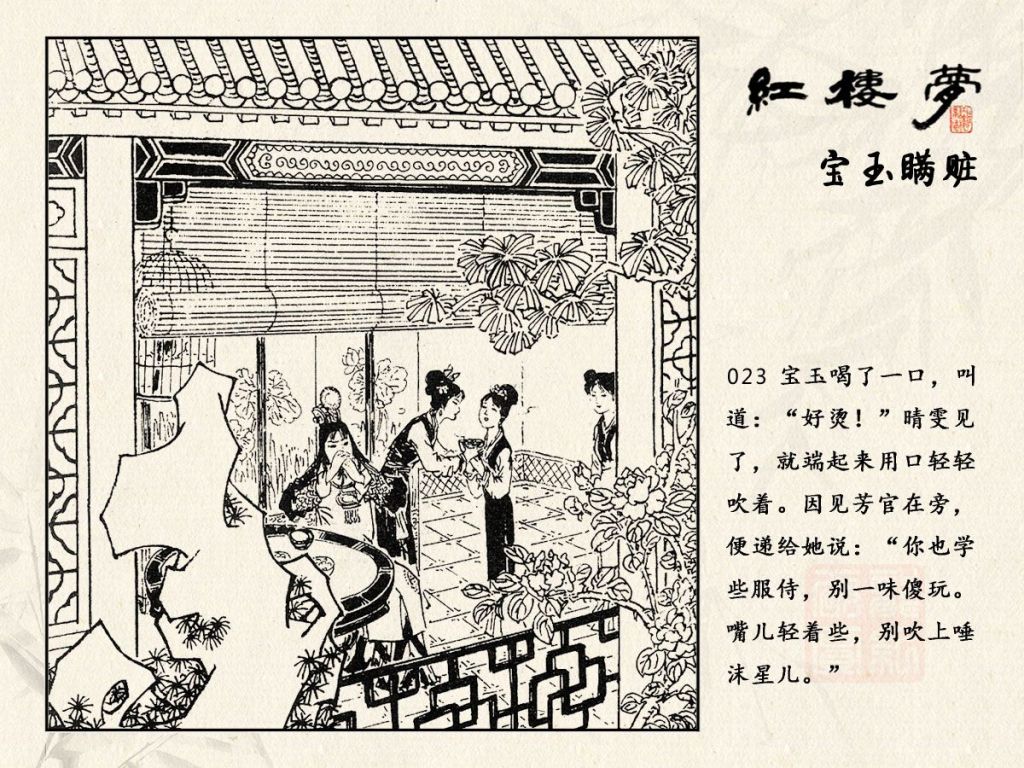 红楼夢
宝玉瞒赃
023 宝玉喝了一口，叫
道：“好烫！”晴雯见
了，就端起来用口轻轻
吹着。因见芳官在旁，
便递给她说：“你也学
些服侍，别一味傻玩。
嘴儿轻着些，别吹上唾
沫星儿。”